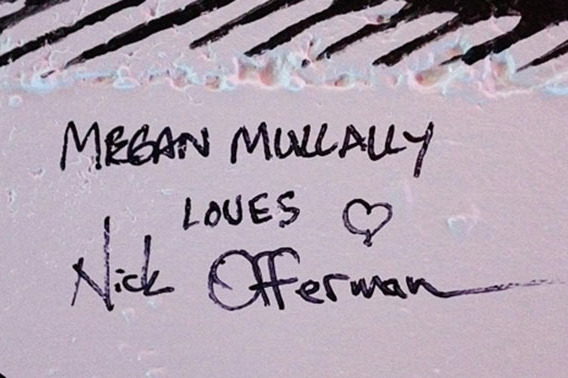 MEGAN MULLALLY
LOVES ♡
Nick Offerman